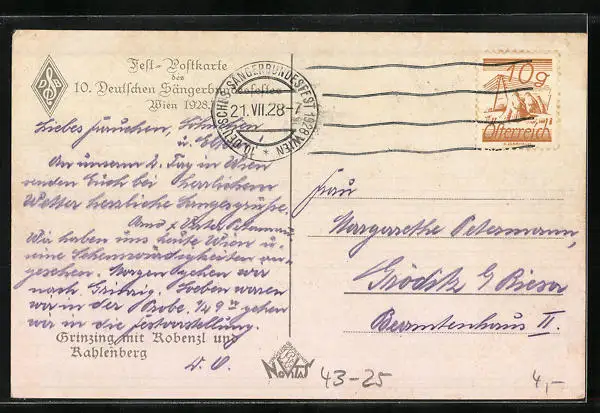 Fest-Postkarte
des
10. Deutschen Sängerbundesfestes
Wien 1928.
DSB
10. DEUTSCHES SÄNGERBUNDESFEST 1928 WIEN
21.VII.28-7
10g
Österreich
Liebes Frauchen,
u.
An unserm 2. Tag in Wien
senden Euch bei herrlichem
Wetter herzliche Sangesgrüße.
Vater Petermann
Wir haben uns heute Wien u.
seine Sehenswürdigkeiten an-
gesehen. Morgen gehen wir
nach Grinzig. Soeben waren
wir in der Probe. 1/4 9 gehen
wir in die Festvorstellung.
D. O.
Grinzing mit Kobenzl und
Kahlenberg
Frau
Margarethe Petermann,
Gröditz b/ Riesa
Beamtenhaus II.
NOVITAS
43-25
4,-